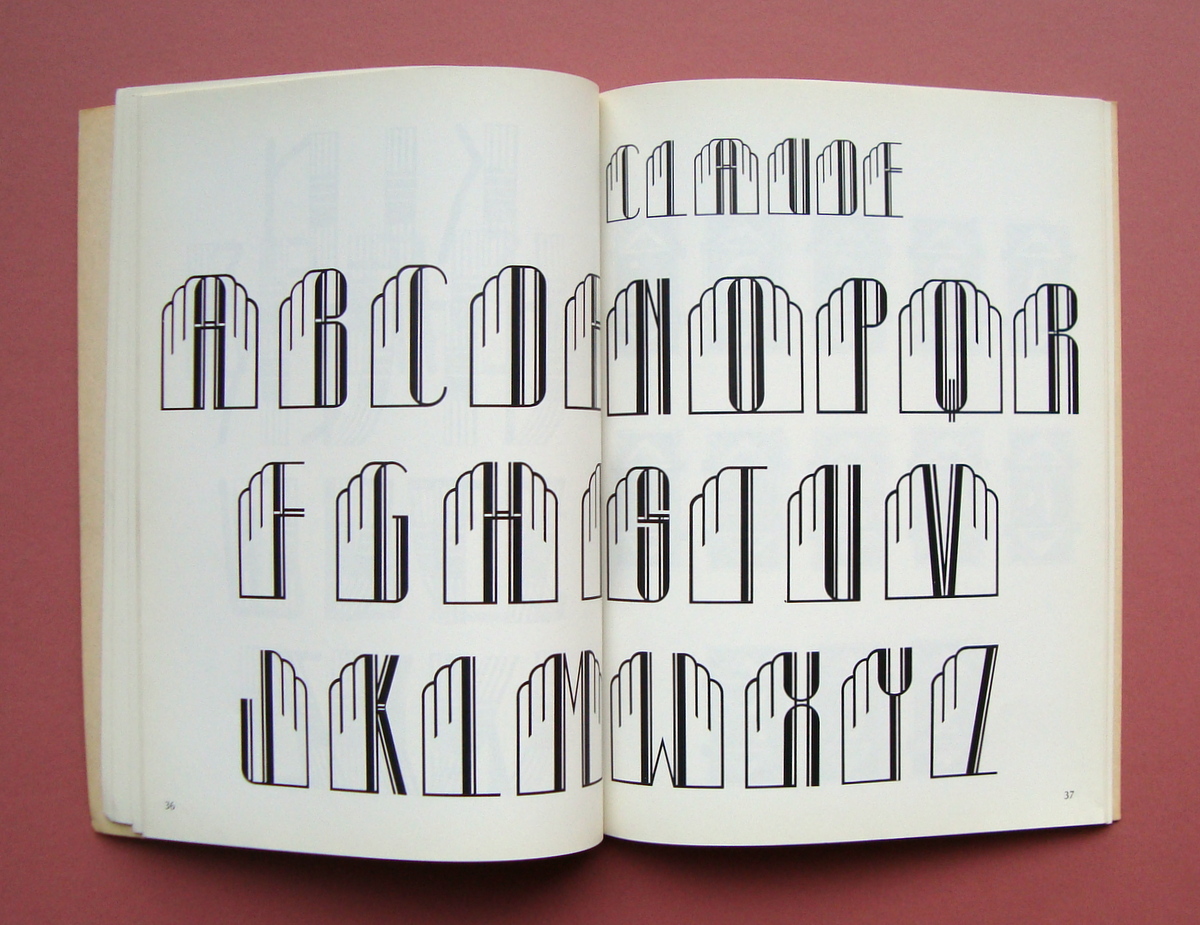 CLAUDE
ABCDE
NOPQR
FGHI
STUV
JKLM
WXYZ
36
37